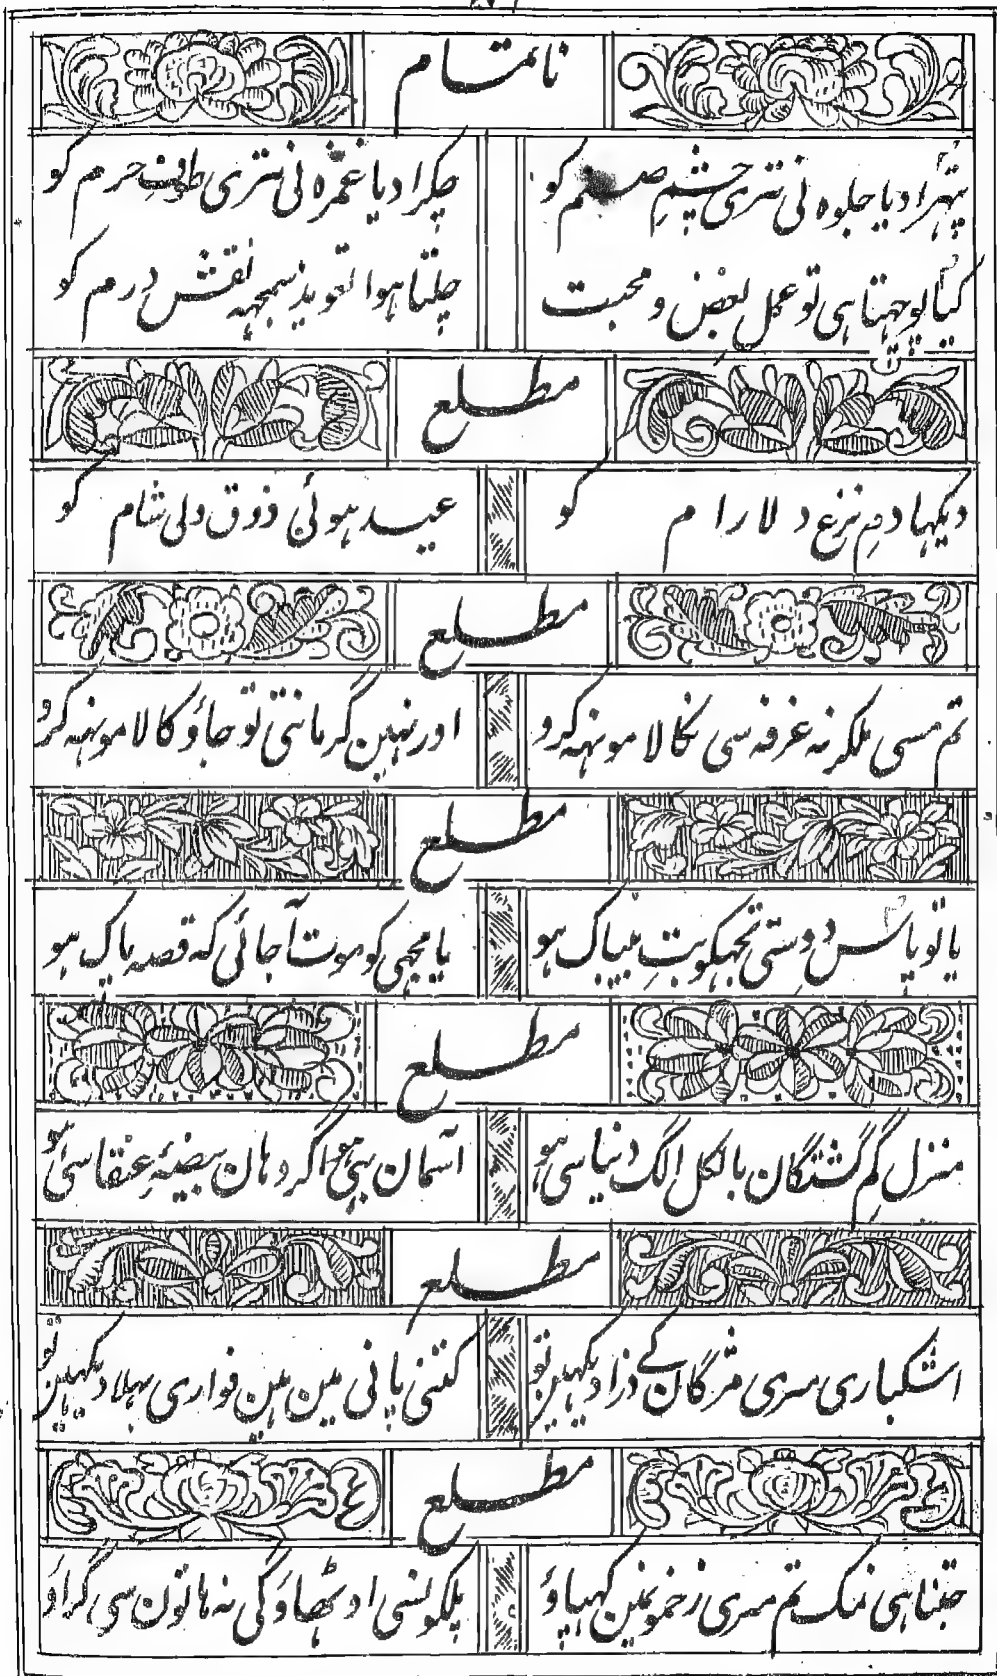 ناتمام
پتہرا دیا جلوہ نی تتری چشمِ صنم کو
چکرا دیا غمزہ نی تتری طوفِ حرم کو
کیا پوچہتا ہی تو عمل بغض و محبت
چلتا ہوا تعویذ سمجہیہ نقش درم کو
مطلع
دیکہا دمِ نزع دلارام کو
عید ہوئی ذوق ولی شام کو
مطلع
تم مسی ملکر نہ غرفہ سی نکالا مونہہ کرو
اور نہین گر مانتی تو جاؤ کالا مونہہ کرو
مطلع
یا تو پاس دوستی تجہکو بتِ بیباک ہو
یا مجہی کو موت آجائی کہ قصہ پاک ہو
مطلع
منزل گم گشتگان بالکل الگ دنیا سی ہو
آسمان بہی ہو اگر وہان بیضئہ عنقا سی ہو
مطلع
اشکباری مری مژگان کے ذرا دیکہین تو
کتنی پانی مین ہین فواری بہلا دیکہین تو
مطلع
جتنا ہی نمک تم مری زخمونمین کہپاؤ
پلکونسی اوٹھاوگی نہ ہاتون سی گراؤ